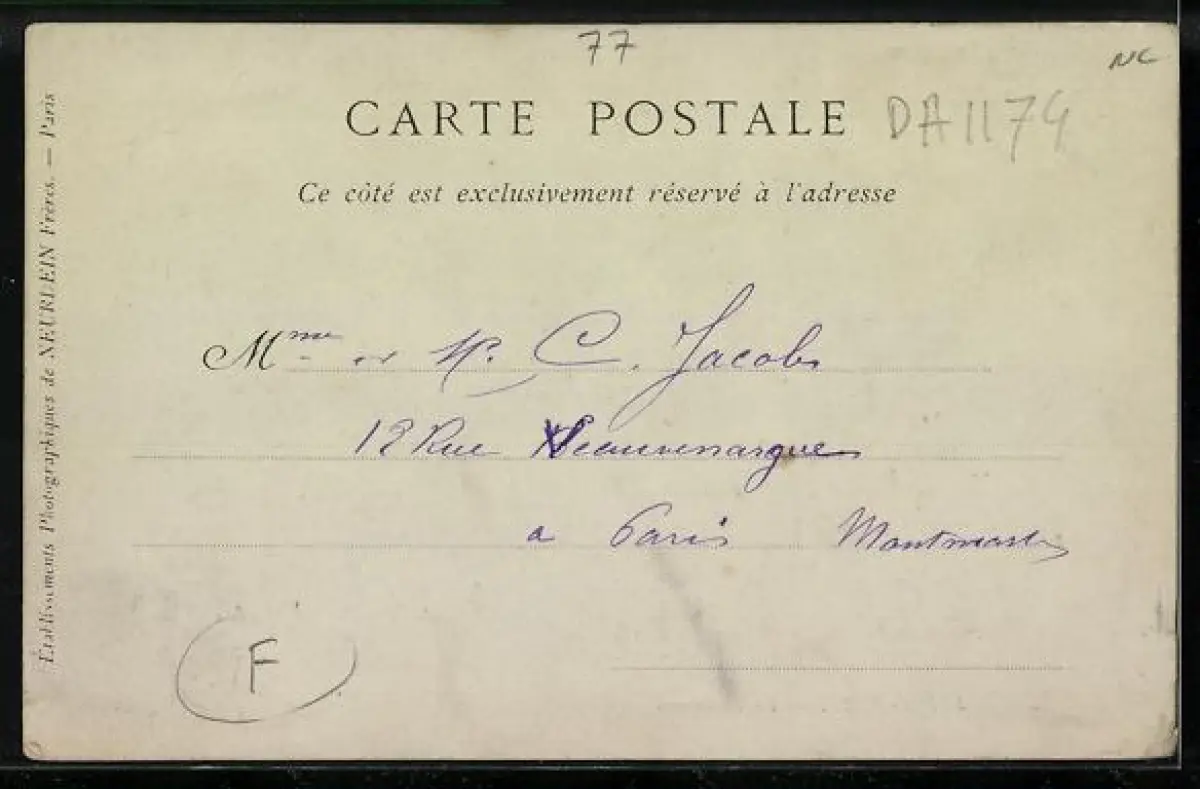 77
NC
CARTE POSTALE
DA1174
Ce côté est exclusivement réservé à l'adresse
Mme et M. C. Jacobs
12 Rue Vauvenargues
a Paris Montmartre
F
Établissements Photographiques de NEURDEIN Frères. — Paris